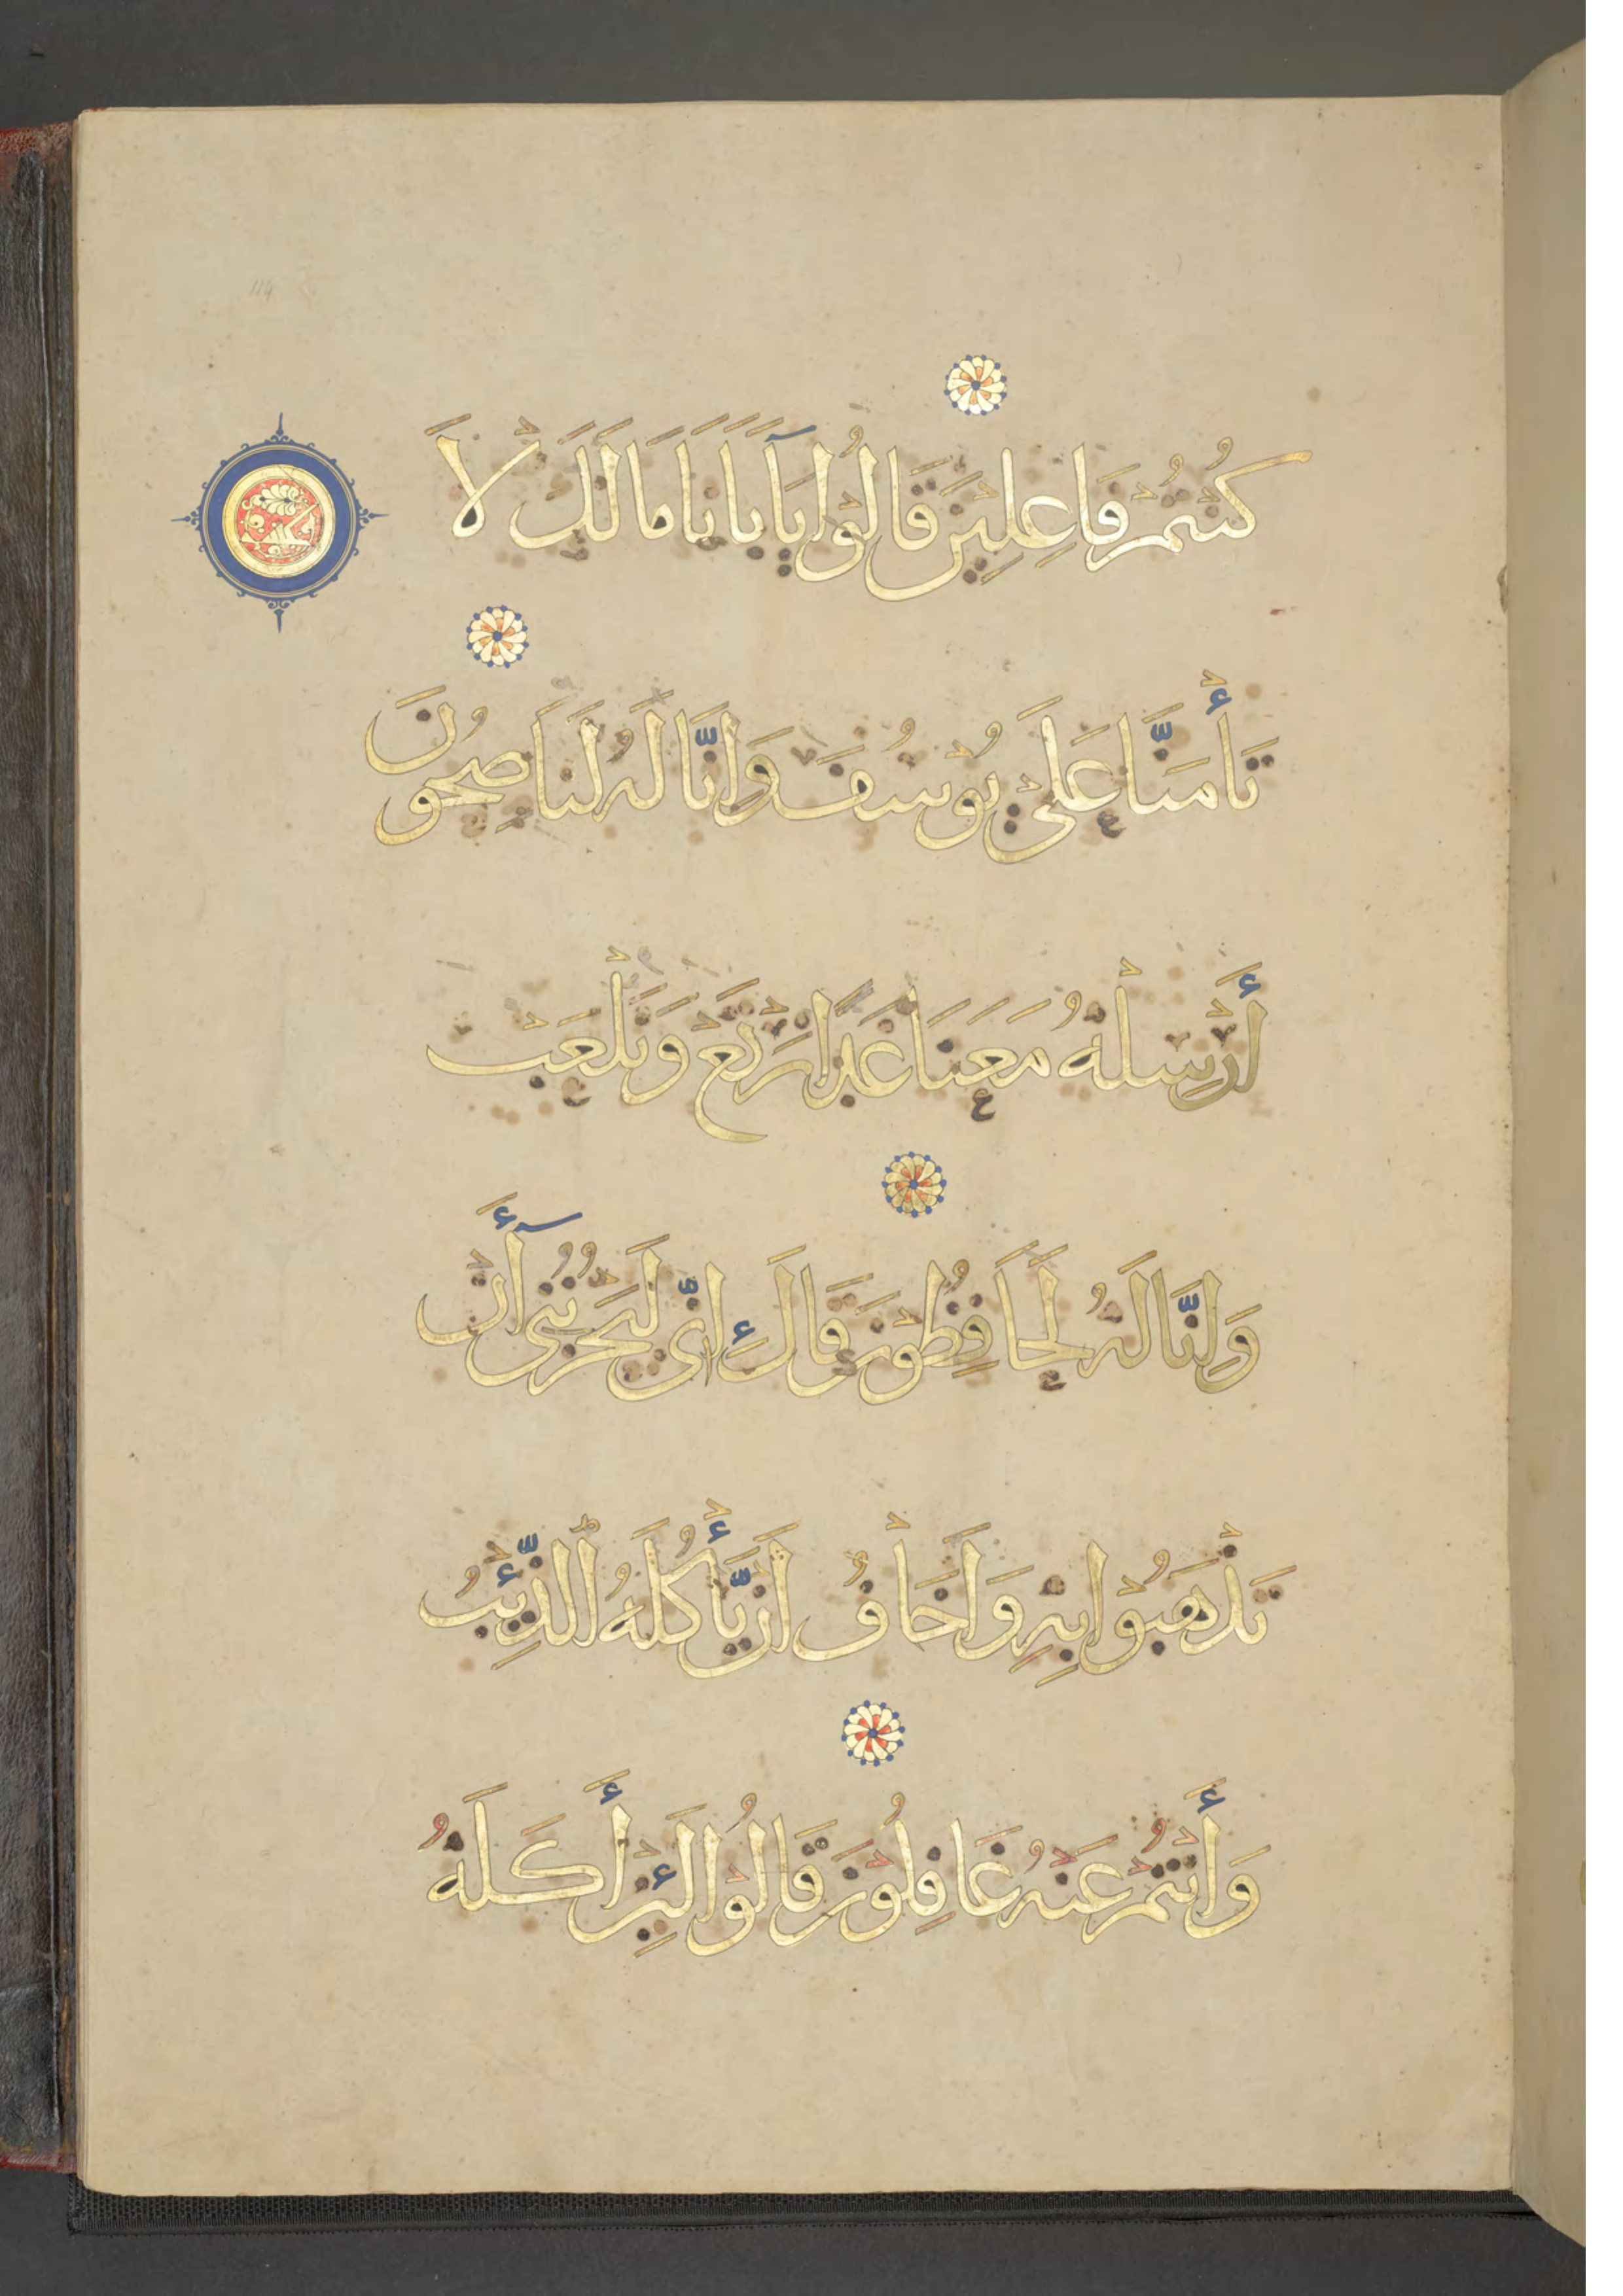 كُنْتُمْ فَاعِلِينَ قَالُوْا يَآ اَبَانَا مَا لَكَ لَا
تَأْمَنَّا عَلَى يُوْسُفَ وَاِنَّا لَهُ لَنَاصِحُوْنَ
أَرْسِلْهُ مَعَنَا غَدًا نَرْتَعْ وَنَلْعَبْ
وَاِنَّا لَهُ لَحَافِظُوْنَ قَالَ اِنِّي لَيَحْزُنُنِي أَنْ
تَذْهَبُوْا بِهِ وَاَخَافُ اَنْ يَّأْكُلَهُ الذِّئْبُ
وَأَنْتُمْ عَنْهُ غَافِلُوْنَ قَالُوْا لَئِنْ أَكَلَهُ